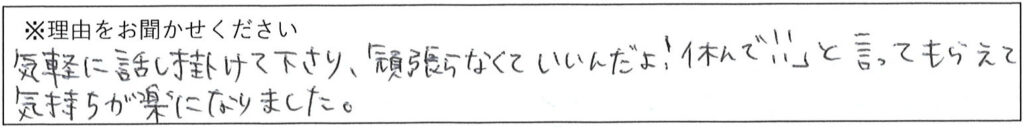 ※理由をお聞かせください
気軽に話し掛けて下さり、頑張らなくていいんだよ!休んで!!」と言ってもらえて
気持ちが楽になりました。